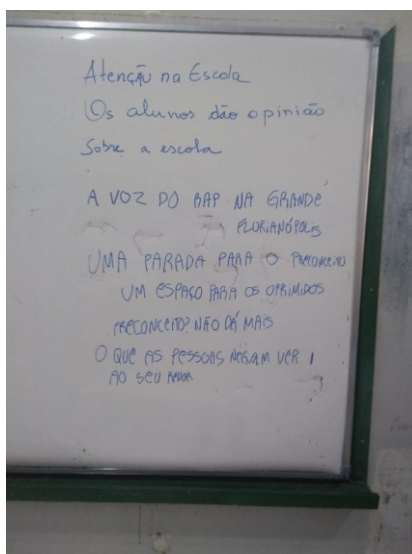 Atenção na Escola
Os alunos dão opinião
Sobre a escola
A VOZ DO RAP NA GRANDE
FLORIANÓPOLIS
UMA PARADA PARA O PRECONCEITO
UM ESPAÇO PARA OS OPRIMIDOS
PRECONCEITO? NÃO DÁ MAIS
O QUE AS PESSOAS NEGAM VER
AO SEU REDOR